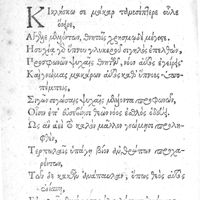 Κικλήσκω σε μάκαρ τανυσίπτερε οὖλε
ὄνειρε,
Ἄγγελε μελλόντων, θνητοῖς χρησμῳδὲ μέγιστε,
Ἡσυχίᾳ γὰρ ὕπνου γλυκεροῦ σιγηλὸς ἐπελθὼν,
Προσφωνῶν ψυχαῖς θνητῶν, νόον αὐτὸς ἐγείρεις,
Καὶ γνώμας μακάρων αὐτὸς καθ' ὕπνους ὑπο-
πέμπεις,
Σιγῶν σιγώσαις ψυχαῖς μέλλοντα προφωνῶν,
Οἷσιν ἐπ' εὐσεβίῃσι θεῶν νόος ἐσθλὸς ὁδεύει,
Ὡς ἂν ἀεὶ τὸ καλὸν μέλλον γνώμῃσι προλη-
φθὲν,
Τερπωλαῖς ὑπάγῃ βίον ἀνθρώπων προχα-
ρέντων,
Τοῦ δὲ κακοῦ ἀνάπαυλαν, ὅπως θεὸς αὐτὸς
ἐνίσπῃ,